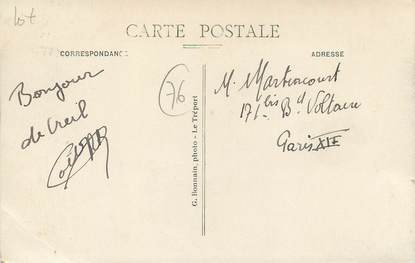 lot
CARTE POSTALE
CORRESPONDANCE
ADRESSE
Bonjour
de Creil
76
G. Bonnain, photo - Le Tréport
M. Martincourt
171 bis Bd Voltaire
Paris XIE